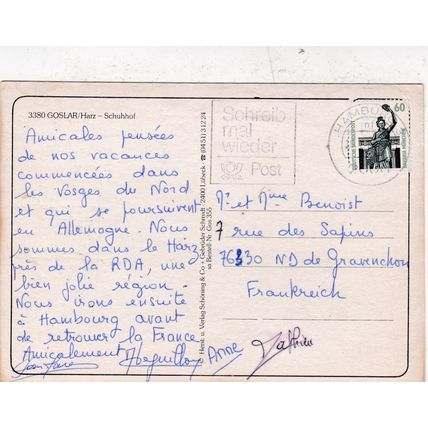 3380 GOSLAR/Harz – Schuhhof
Amicales pensées
de nos vacances
commencées dans
les Vosges du Nord
et qui se poursuivent
en Allemagne. Nous
sommes dans le Harz
près de la RDA, une
bien jolie région.
Nous irons ensuite
à Hambourg avant
de retrouver la France
Amicalement
Anne
© Herst. u. Verlag Schöning & Co + Gebrüder Schmidt · 2400 Lübeck · ☎ (0451) 3 12 24
Schreib
mal
wieder
Post
HAMBU
60
DEUTSCHE BUNDESPOST
Mr et Mme Benoist
7 rue des Sapins
76330 ND de Gravenchon
Frankreich